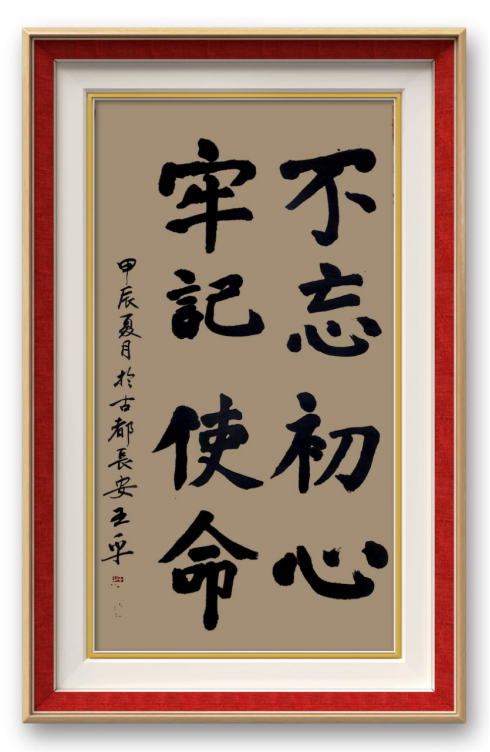 不忘初心
牢記使命
甲辰夏月於古都長安王平